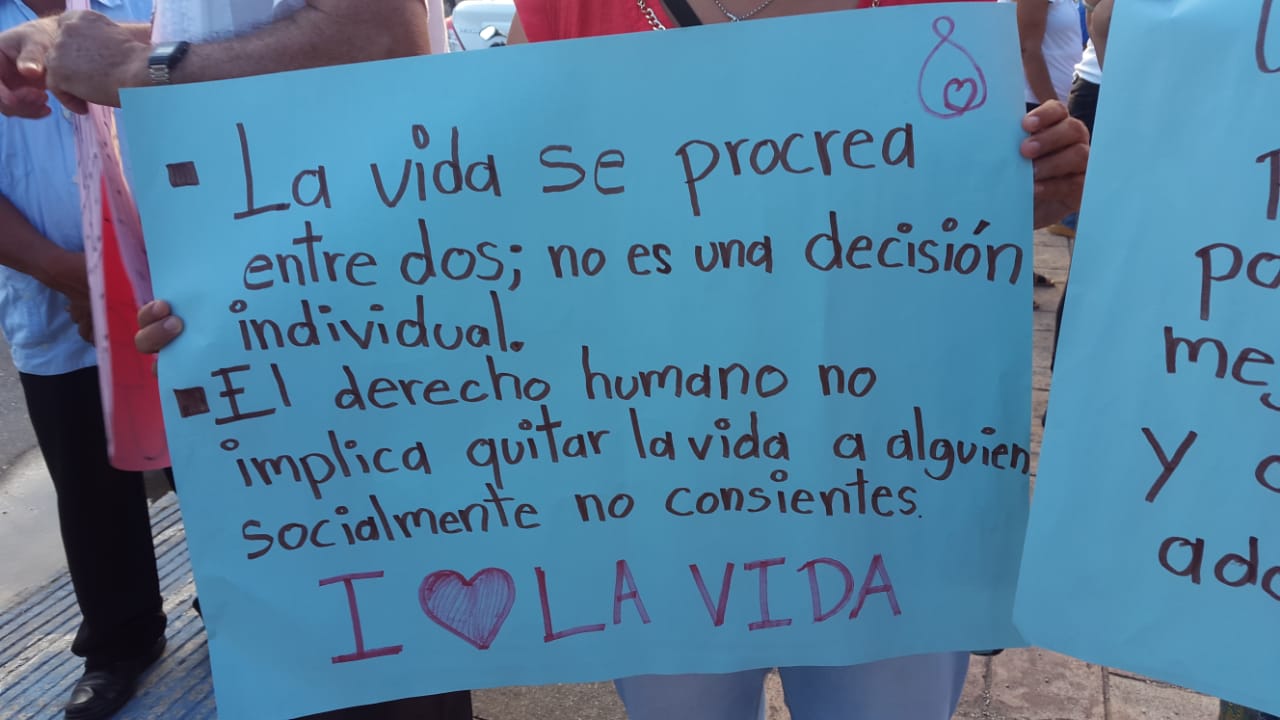 ▪ La vida se procrea
entre dos; no es una decisión
individual.
▪ El derecho humano no
implica quitar la vida a alguien
socialmente no consientes.
I ♥ LA VIDA
y